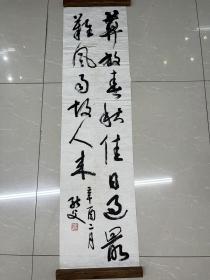 莫放春秋佳日過最
難風雨故人来
辛酉二月